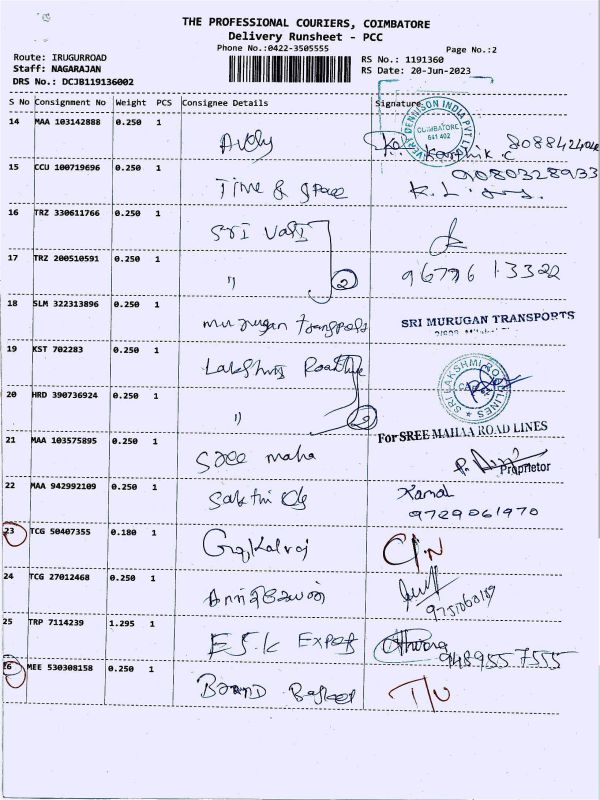 THE PROFESSIONAL COURIERS, COIMBATORE
Delivery Runsheet - PCC
Phone No.:0422-3505555
Page No.:2
Route: IRUGURROAD
RS No.: 1191360
Staff: NAGARAJAN
RS Date: 20-Jun-2023
DRS No.: DCJB119136002
S No Consignment No Weight PCS Consignee Details Signature
14 MAA 103142888 0.250 1 Avery
DENNISON INDIA PVT
COIMBATORE
641 402
Karthik. C
15 CCU 100719696 0.250 1 Time & space
9080328933
16 TRZ 330611766 0.250 1 Sri
17 TRZ 200510591 0.250 1 " 2
96776 13322
18 SLM 322313896 0.250 1 murugan transpots
SRI MURUGAN TRANSPORTS
19 KST 702283 0.250 1 Lakshmi
SRI LAKSHMI ROADLINES
20 HRD 390736924 0.250 1 " 2
For SREE MAHAA ROAD LINES
21 MAA 103575895 0.250 1 Sree maha
Proprietor
22 MAA 942992109 0.250 1 Sakthi
Kamal
9729061970
23 TCG 50407355 0.180 1
C/N
24 TCG 27012468 0.250 1
25 TRP 7114239 1.295 1 ESK Expots
948955 7555
26 MEE 530308158 0.250 1 Brand